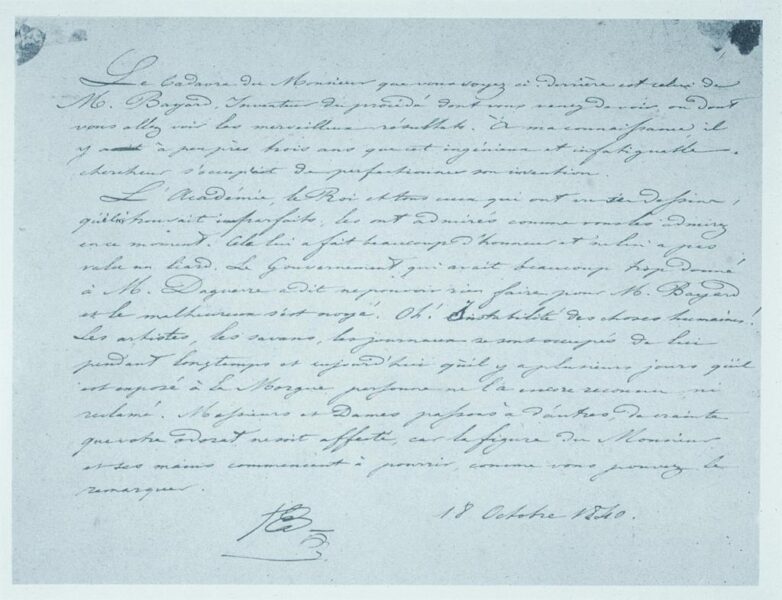 Le Cadavre du Monsieur que vous voyez ci-derrière est celui de
M. Bayard, Inventeur du procédé dont vous venez de voir, ou dont
vous allez voir les merveilleux résultats. À ma connaissance il
y a à peu près trois ans que cet ingénieux et infatiguable
chercheur s'occupait de perfectionner son invention.
L'Académie, le Roi et tous ceux qui ont vu ses dessins,
qu'il trouvait imparfaits, les ont admirés comme vous les admirez
en ce moment. Cela lui a fait beaucoup d'honneur et ne lui a pas
valu un liard. Le Gouvernement, qui avait beaucoup trop donné
à M. Daguerre a dit ne pouvoir rien faire pour M. Bayard
et le malheureux s'est noyé. Oh! Instabilité des choses humaines!
Les artistes, les savans, les journaux se sont occupés de lui
pendant longtemps et aujourd'hui qu'il y a plusieurs jours qu'il
est exposé à la Morgue personne ne l'a encore reconnu, ni
réclamé. Messieurs et Dames, passons à d'autres, de crainte
que votre odorat ne soit affecté, car la figure du Monsieur
et ses mains commencent à pourrir, comme vous pouvez le
remarquer.
HB 18 Octobre 1840.